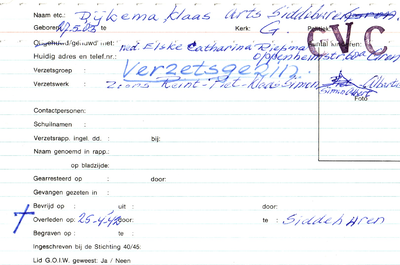 Naam etc.: Dijkema Klaas Arts Siddeburen
Geboren: 17.5.05 Kerk: G.
CVC
Ongehuwd/gehuwd met: ned. Elske Catharina Riepma Aantal kinderen:
Huidig adres en telef.nr.: Oppenheimstr.
Verzetsgroep : Verzetsgezin.
Verzetswerk : zoons Reint-Piet-Klaas-Simon
Foto
Contactpersonen:
Schuilnaam :
Verzetsrapp. ingel. dd. : bij:
Naam genoemd in rapp.:
op bladzijde:
Gearresteerd op : door:
Gevangen gezeten in :
Bevrijd op : uit : door:
Overleden op: 25-4-42 door: te : Siddeburen
Begraven op : te :
Ingeschreven bij de Stichting 40/45:
Lid G.O.I.W. geweest: Ja / Neen